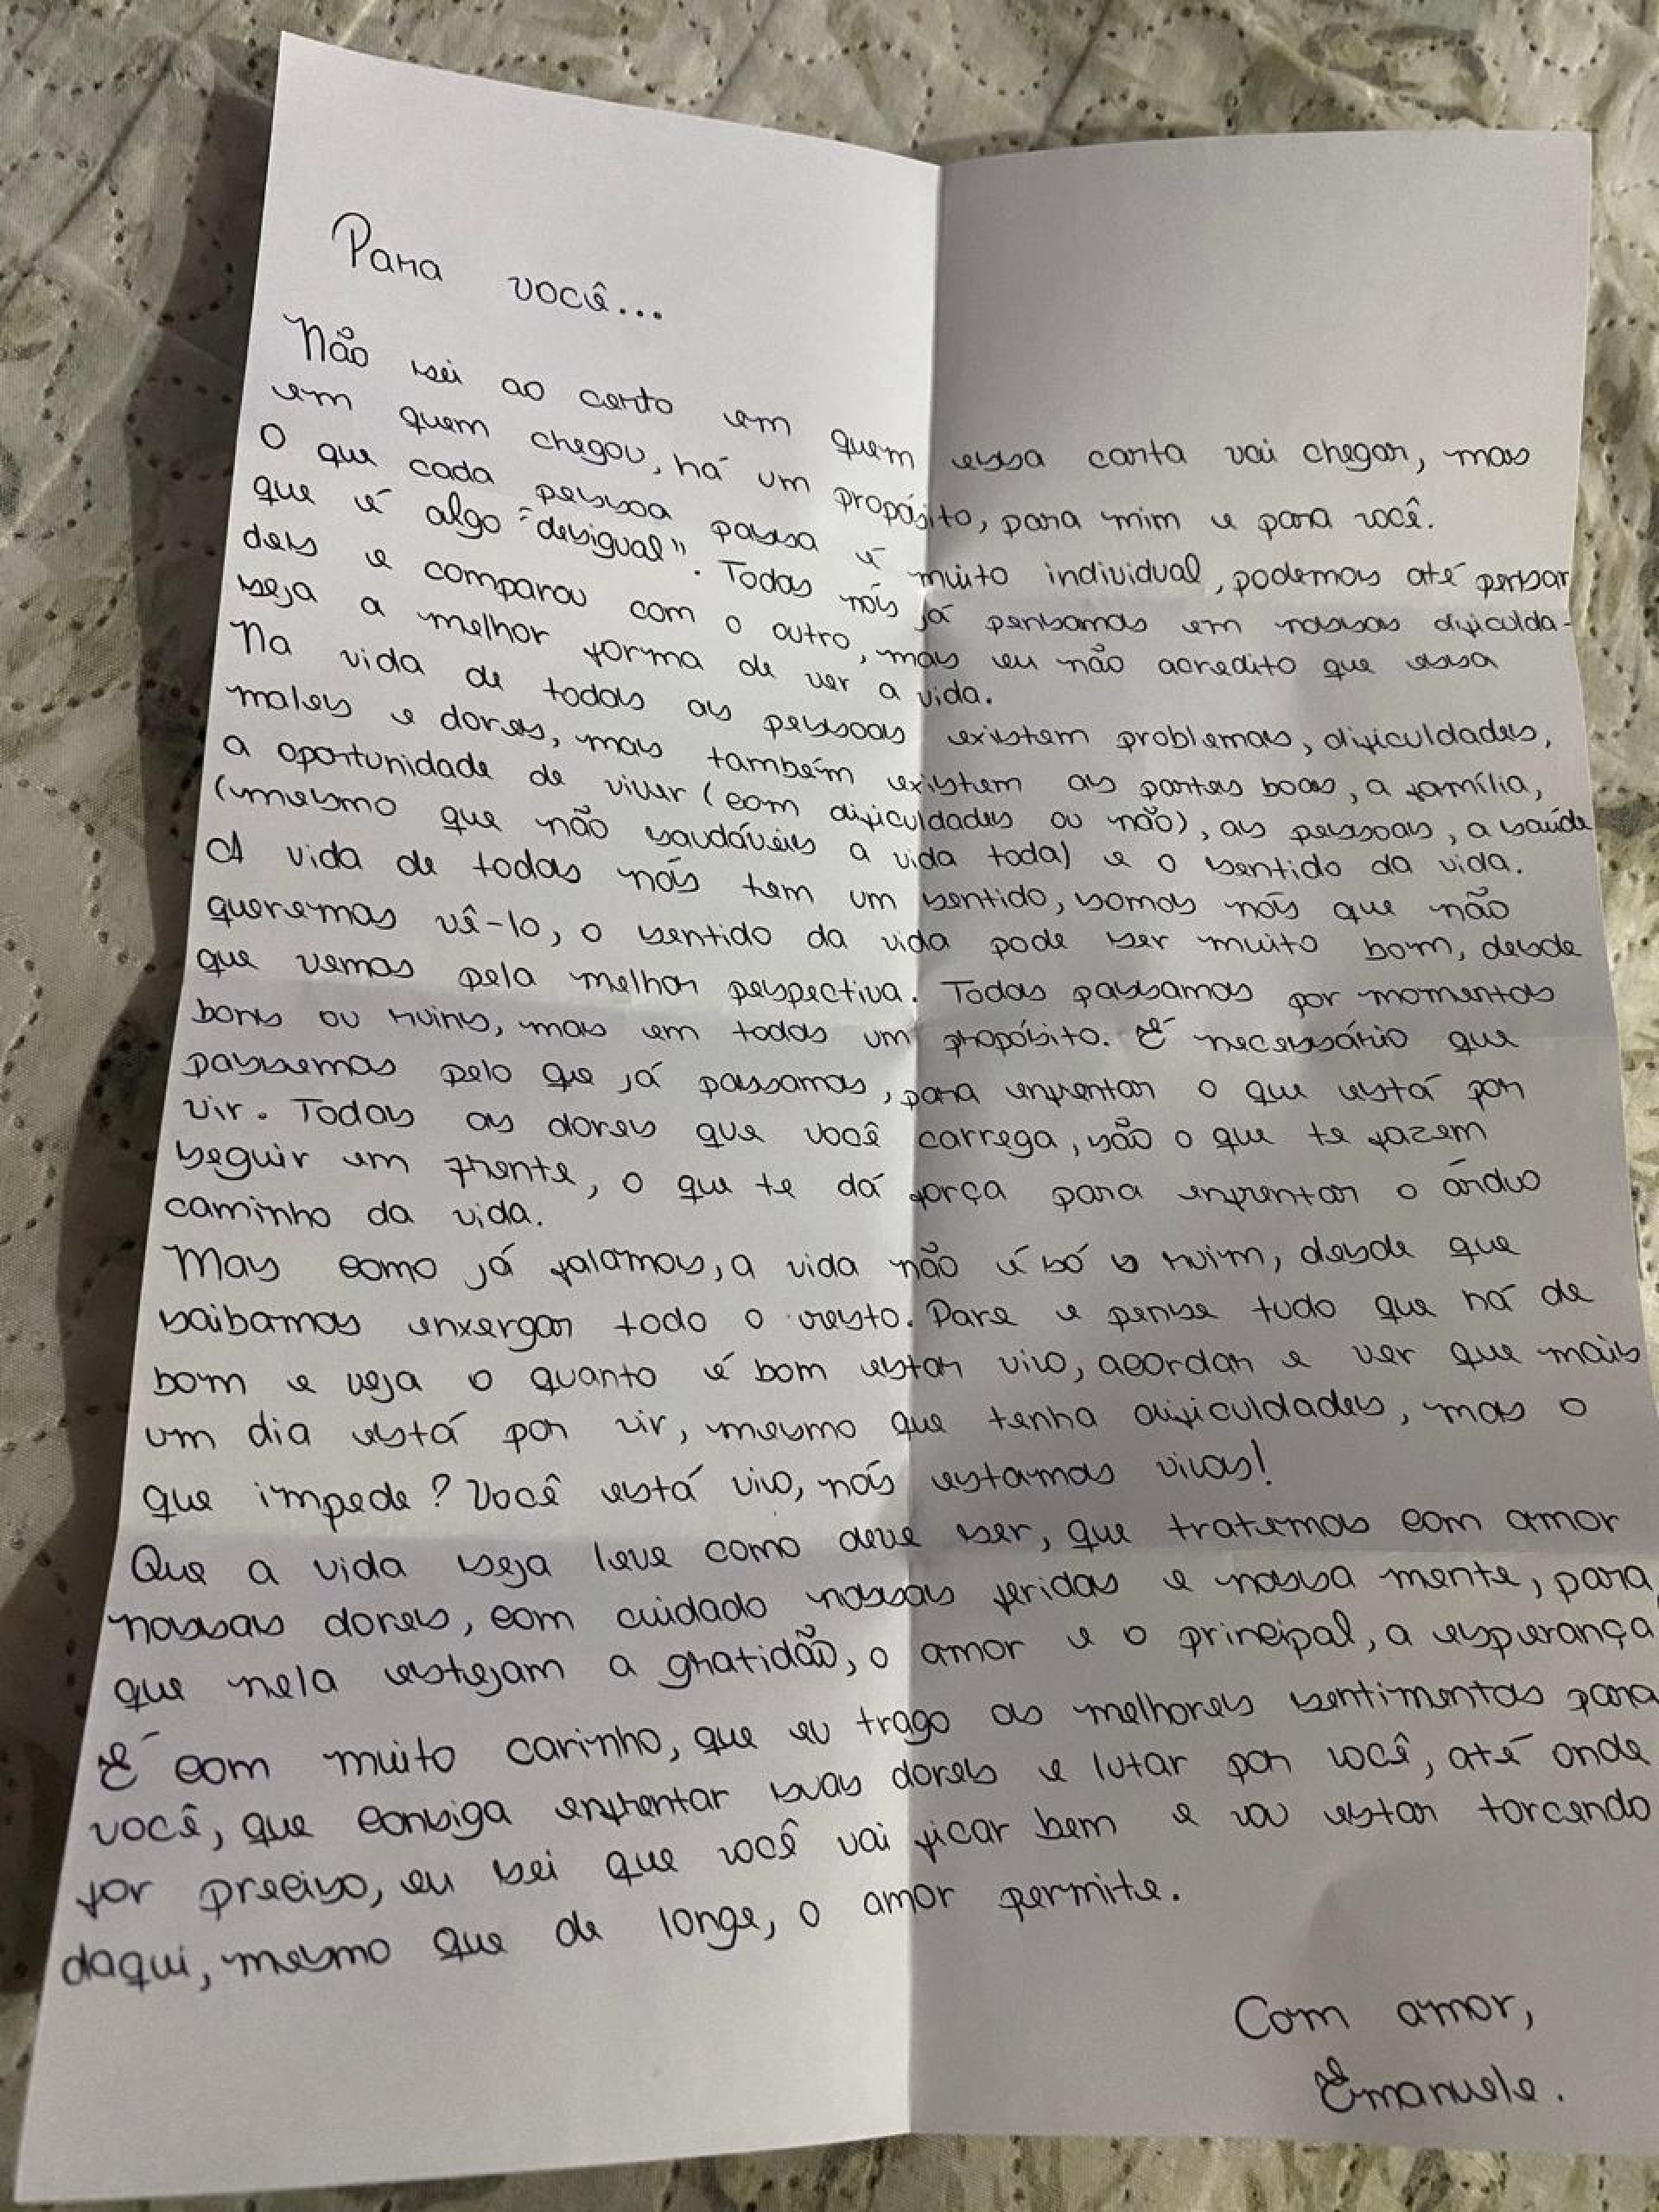 Para você...
Não sei ao certo em quem essa carta vai chegar, mas
em quem chegou, há um propósito, para mim e para você.
O que cada pessoa passa é muito individual, podemos até pensar
que é algo "desigual". Todos nós já pensamos em nossas dificulda-
des e comparou com o outro, mas eu não acredito que essa
seja a melhor forma de ver a vida.
Na vida de todas as pessoas existem problemas, dificuldades,
males e dores, mas também existem as partes boas, a família,
a oportunidade de viver (com dificuldades ou não), as pessoas, a saúde
(mesmo que não saudáveis a vida toda) e o sentido da vida.
A vida de todos nós tem um sentido, somos nós que não
queremos vê-lo, o sentido da vida pode ser muito bom, desde
que vemos pela melhor perspectiva. Todos passamos por momentos
bons ou ruins, mas em todos um propósito. É necessário que
passemos pelo que já passamos, para enfrentar o que está por
vir. Todas as dores que você carrega, são o que te fazem
seguir em frente, o que te dá força para enfrentar o árduo
caminho da vida.
Mas como já falamos, a vida não é só o ruim, desde que
saibamos enxergar todo o resto. Pare e pense tudo que há de
bom e veja o quanto é bom estar vivo, acordar e ver que mais
um dia está por vir, mesmo que tenha dificuldades, mas o
que impede? Você está vivo, nós estamos vivos!
Que a vida seja leve como deve ser, que tratemos com amor
nossas dores, com cuidado nossas feridas e nossa mente, para
que nela estejam a gratidão, o amor e o principal, a esperança
É com muito carinho, que eu trago os melhores sentimentos para
você, que consiga enfrentar suas dores e lutar por você, até onde
for preciso, eu sei que você vai ficar bem e vou estar torcendo
daqui, mesmo que de longe, o amor permite.
Com amor,
Emanuele.